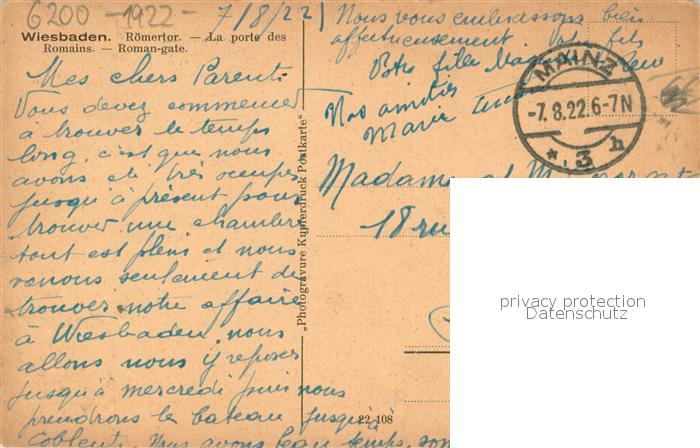 6200 -1922-
7/8/22
Wiesbaden. Römertor. — La porte des
Romains. — Roman-gate.
Mes chers Parents
Vous devez commencer
à trouver le temps
long, c'est que nous
avons été très occupés
jusqu'à présent pour
trouver une chambre
tout est plein et nous
venons seulement de
trouver notre affaire
à Wiesbaden, nous
allons nous y reposer
jusqu'à mercredi puis nous
prendrons le bateau jusqu'à
Coblentz. Nous avons beau temps,
Nous vous embrassons bien
affectueusement
Votre fille
Nos amitiés
Marie
MAINZ
-7.8.22.6-7N
* 3 h
Madame et M
18 rue
„Photogravure Kupferdruck Postkarte“
22 108
privacy protection
Datenschutz